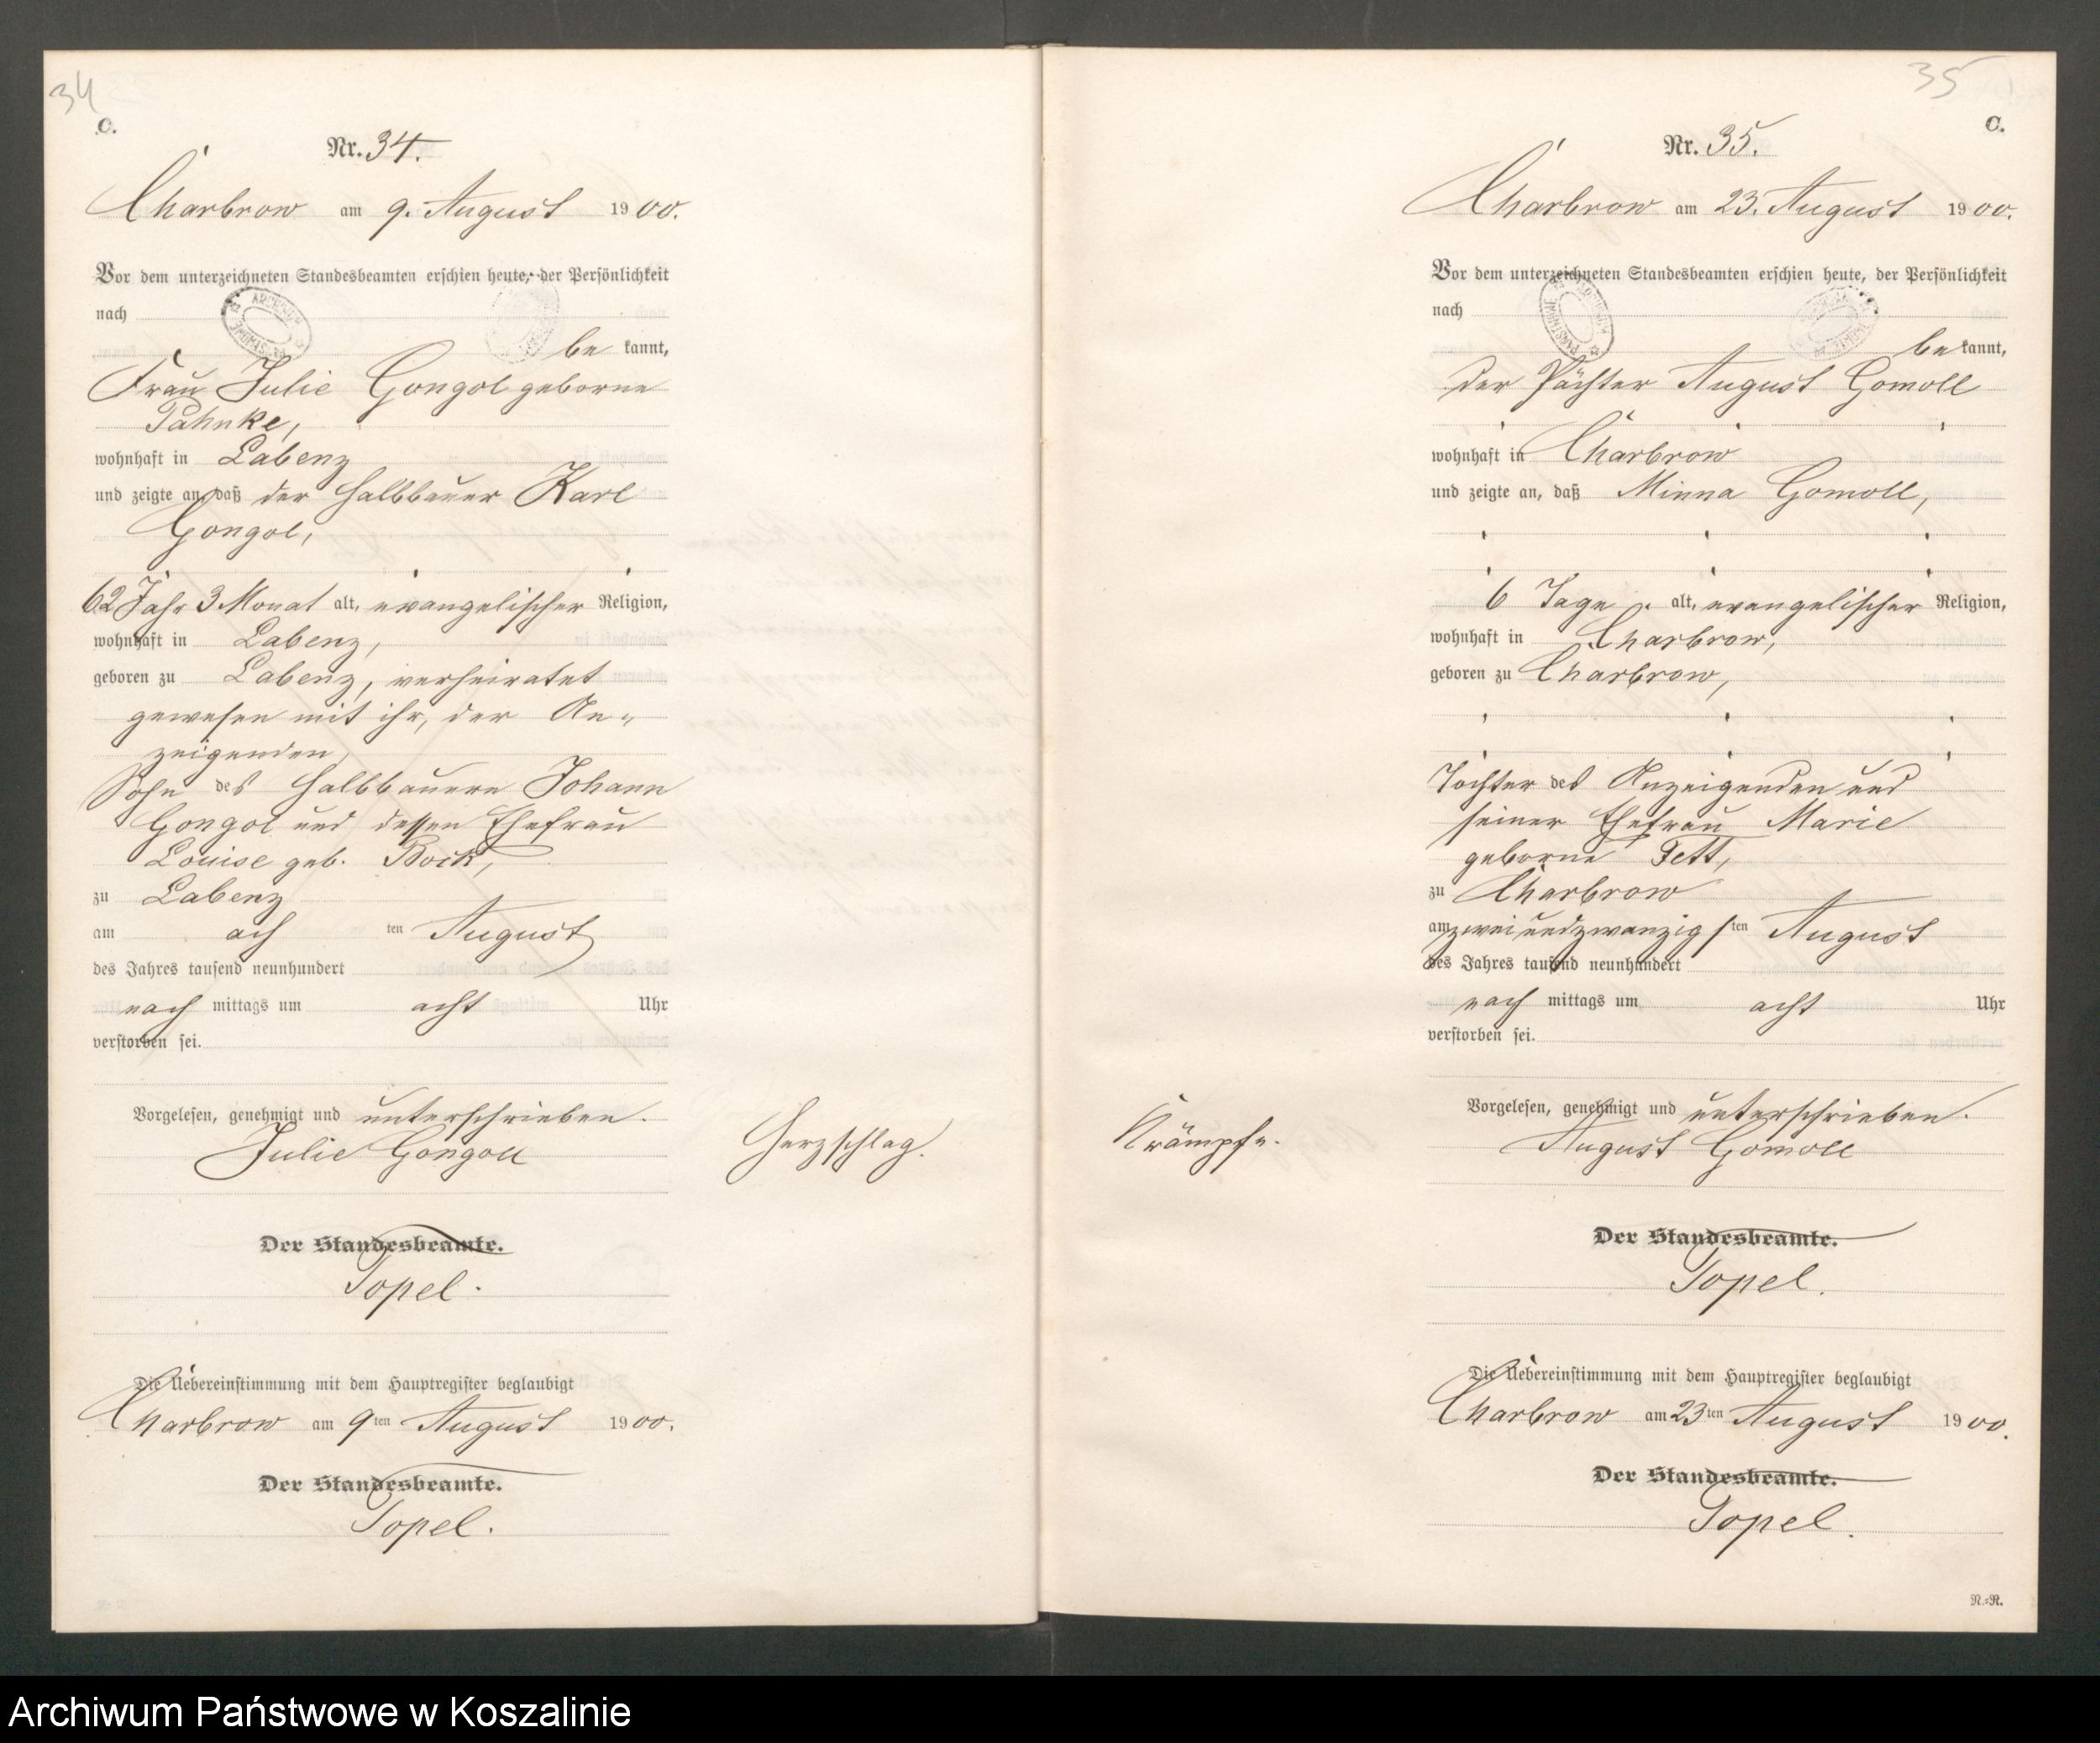 34
C.
Nr. 34.
Charbrow am 9. August 1900.
Vor dem unterzeichneten Standesbeamten erschien heute, der Persönlichkeit
nach
be kannt,
Frau Julie Gongol geborne
Pahnke,
wohnhaft in Labenz
und zeigte an, daß der Halbbauer Karl
Gongol,
62 Jahr 3 Monat alt, evangelischer Religion,
wohnhaft in Labenz,
geboren zu Labenz, verheiratet
gewesen mit ihr, der An-
zeigenden,
Sohn des Halbbauern Johann
Gongol und dessen Ehefrau
Louise geb. Bock,
zu Labenz
am ach ten August
des Jahres tausend neunhundert
nach mittags um acht Uhr
verstorben sei.
Vorgelesen, genehmigt und unterschrieben.
Julie Gongoll
Herzschlag.
Der Standesbeamte.
Topel.
Die Uebereinstimmung mit dem Hauptregister beglaubigt
Charbrow am 9ten August 1900.
Der Standesbeamte.
Topel.
35
C.
Nr. 35.
Charbrow am 23. August 1900.
Vor dem unterzeichneten Standesbeamten erschien heute, der Persönlichkeit
nach
be kannt,
der Pächter August Gomoll
wohnhaft in Charbrow
und zeigte an, daß Minna Gomoll,
6 Tage alt, evangelischer Religion,
wohnhaft in Charbrow,
geboren zu Charbrow,
Tochter des Anzeigenden und
seiner Ehefrau Marie
geborne Fett,
zu Charbrow
am zweiundzwanzigsten August
des Jahres tausend neunhundert
nach mittags um acht Uhr
verstorben sei.
Vorgelesen, genehmigt und unterschrieben.
August Gomoll
Krämpfe.
Der Standesbeamte.
Topel.
Die Uebereinstimmung mit dem Hauptregister beglaubigt
Charbrow am 23ten August 1900.
Der Standesbeamte.
Topel.
N.=R.
Archiwum Państwowe w Koszalinie